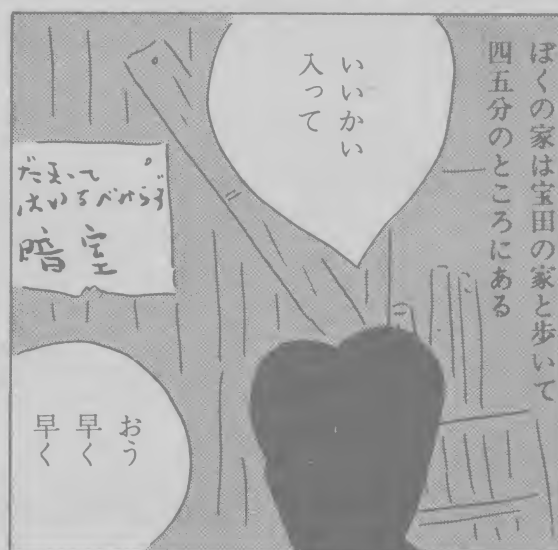 ぼくの家は宝田の家と歩いて
四五分のところにある
いいかい
入って
だまって
はいるべからず
暗室
おう
早く
早く